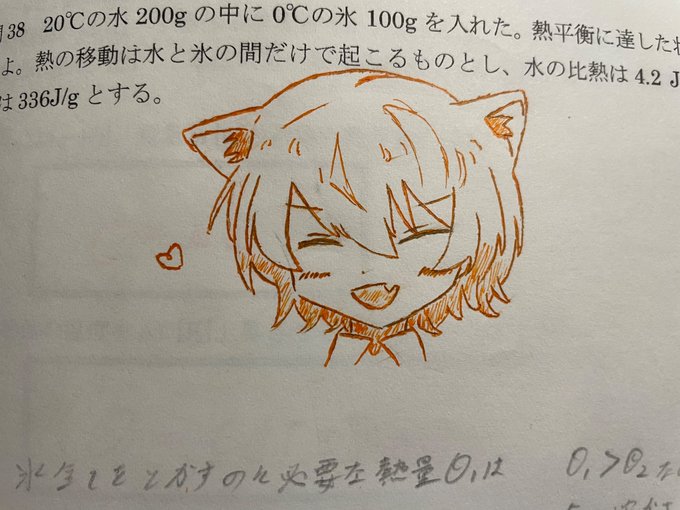 38 20℃の水 200g の中に 0℃の氷 100g を入れた。熱平衡に達した
よ。熱の移動は水と氷の間だけで起こるものとし、水の比熱は 4.2 J
は 336J/g とする。
氷全てをとかすのに必要な熱量Q₁は
Q₁>Q₂